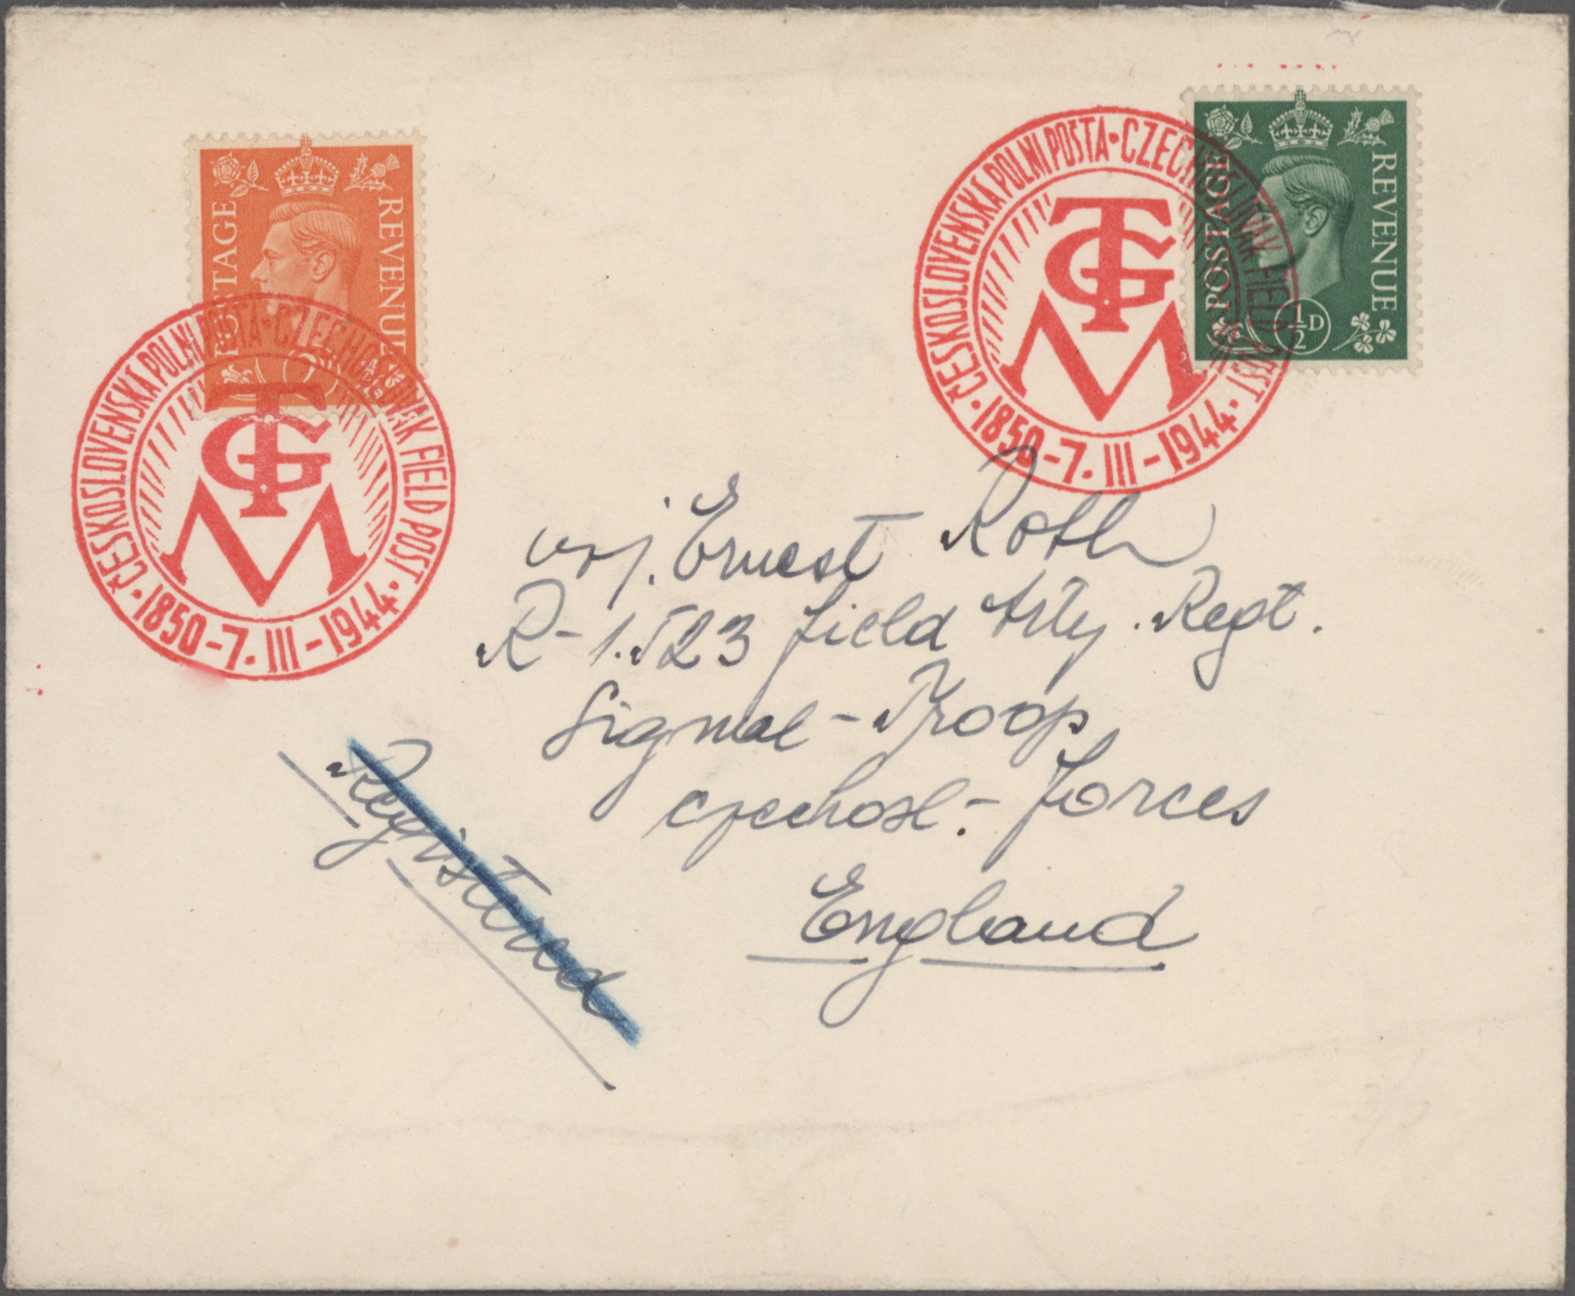 POSTAGE
REVENUE
ČESKOSLOVENSKA POLNI POSTA · CZECHOSLOVAK FIELD POST ·
TGM
1850-7. III-1944
POSTAGE
REVENUE
½D
ČESKOSLOVENSKA POLNI POSTA · CZECHOSLOVAK FIELD POST ·
TGM
1850-7. III-1944
voj. Ernest Roth
R-1.523 Field Arty. Regt.
Signal-Troop
Czechosl.- Forces
England
Registered